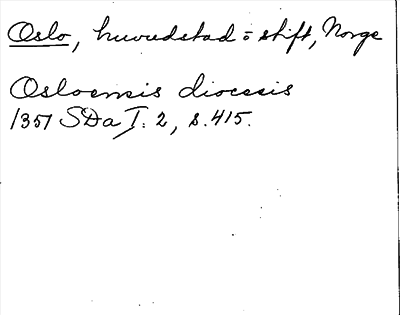 Oslo, huvudstad o stift, Norge
Osloensis diocesis
1351 SDaT. 2, s. 415.